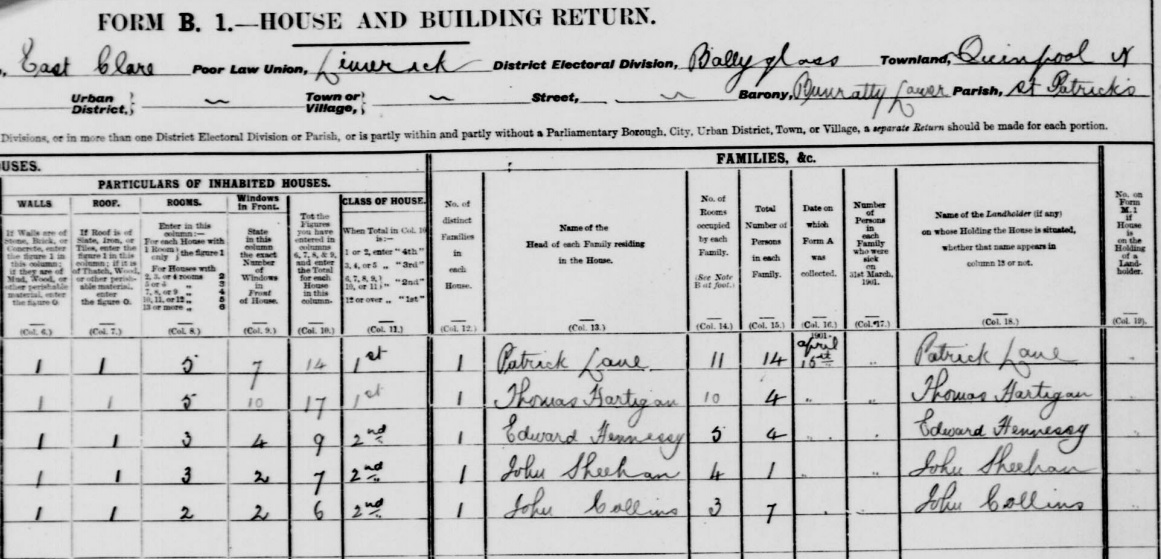 FORM B. 1.—HOUSE AND BUILDING RETURN.
East Clare Poor Law Union, Limerick District Electoral Division, Ballyglass Townland, Quinpool N
Urban District, } ~ Town or Village, } ~ Street, ~ Barony, Bunratty Lower Parish, St Patrick's
Divisions, or in more than one District Electoral Division or Parish, or is partly within and partly without a Parliamentary Borough, City, Urban District, Town, or Village, a separate Return should be made for each portion.
OUSES.
FAMILIES, &c.
PARTICULARS OF INHABITED HOUSES.
WALLS. ROOF. ROOMS. Windows in Front. CLASS OF HOUSE.
If Walls are of Stone, Brick, or Concrete, enter the figure 1 in this column; if they are of Mud, Wood, or other perishable material, enter the figure 0.
If Roof is of Slate, Iron, or Tiles, enter the figure 1 in this column; if it is of Thatch, Wood, or other perishable material, enter the figure 0.
Enter in this column:—
For each House with 1 Room only } the figure 1
For Houses with
2, 3, or 4 rooms 2
5 or 6 „ 3
7, 8, or 9 „ 4
10, 11, or 12 „ 5
13 or more „ 6
State in this column the exact Number of Windows in Front of House.
Tot the Figures you have entered in columns 6, 7, 8, & 9, and enter the Total for each House in this column.
When Total in Col. 10 is:—
1 or 2, enter "4th"
3, 4, or 5 „ "3rd"
6, 7, 8, 9, 10, or 11 } „ "2nd"
12 or over „ "1st"
No. of distinct Families in each House.
Name of the Head of each Family residing in the House.
No. of Rooms occupied by each Family. (See Note B at foot.)
Total Number of Persons in each Family.
Date on which Form A was collected.
Number of Persons in each Family who were sick on 31st March, 1901.
Name of the Landholder (if any) on whose Holding the House is situated, whether that name appears in column 13 or not.
No. on Form M. 1 if House is on the Holding of a Landholder.
(Col. 6.) (Col. 7.) (Col. 8.) (Col. 9.) (Col. 10.) (Col. 11.) (Col. 12.) (Col. 13.) (Col. 14.) (Col. 15.) (Col. 16.) (Col. 17.) (Col. 18.) (Col. 19).
1 1 5 7 14 1st 1 Patrick Lane 11 14 1901. April 15st „ Patrick Lane
1 1 5 10 17 1st 1 Thomas Hartigan 10 4 „ „ Thomas Hartigan
1 1 3 4 9 2nd 1 Edward Hennessy 5 4 „ „ Edward Hennessy
1 1 3 2 7 2nd 1 John Sheehan 4 1 „ „ John Sheehan
1 1 2 2 6 2nd 1 John Collins 3 7 John Collins